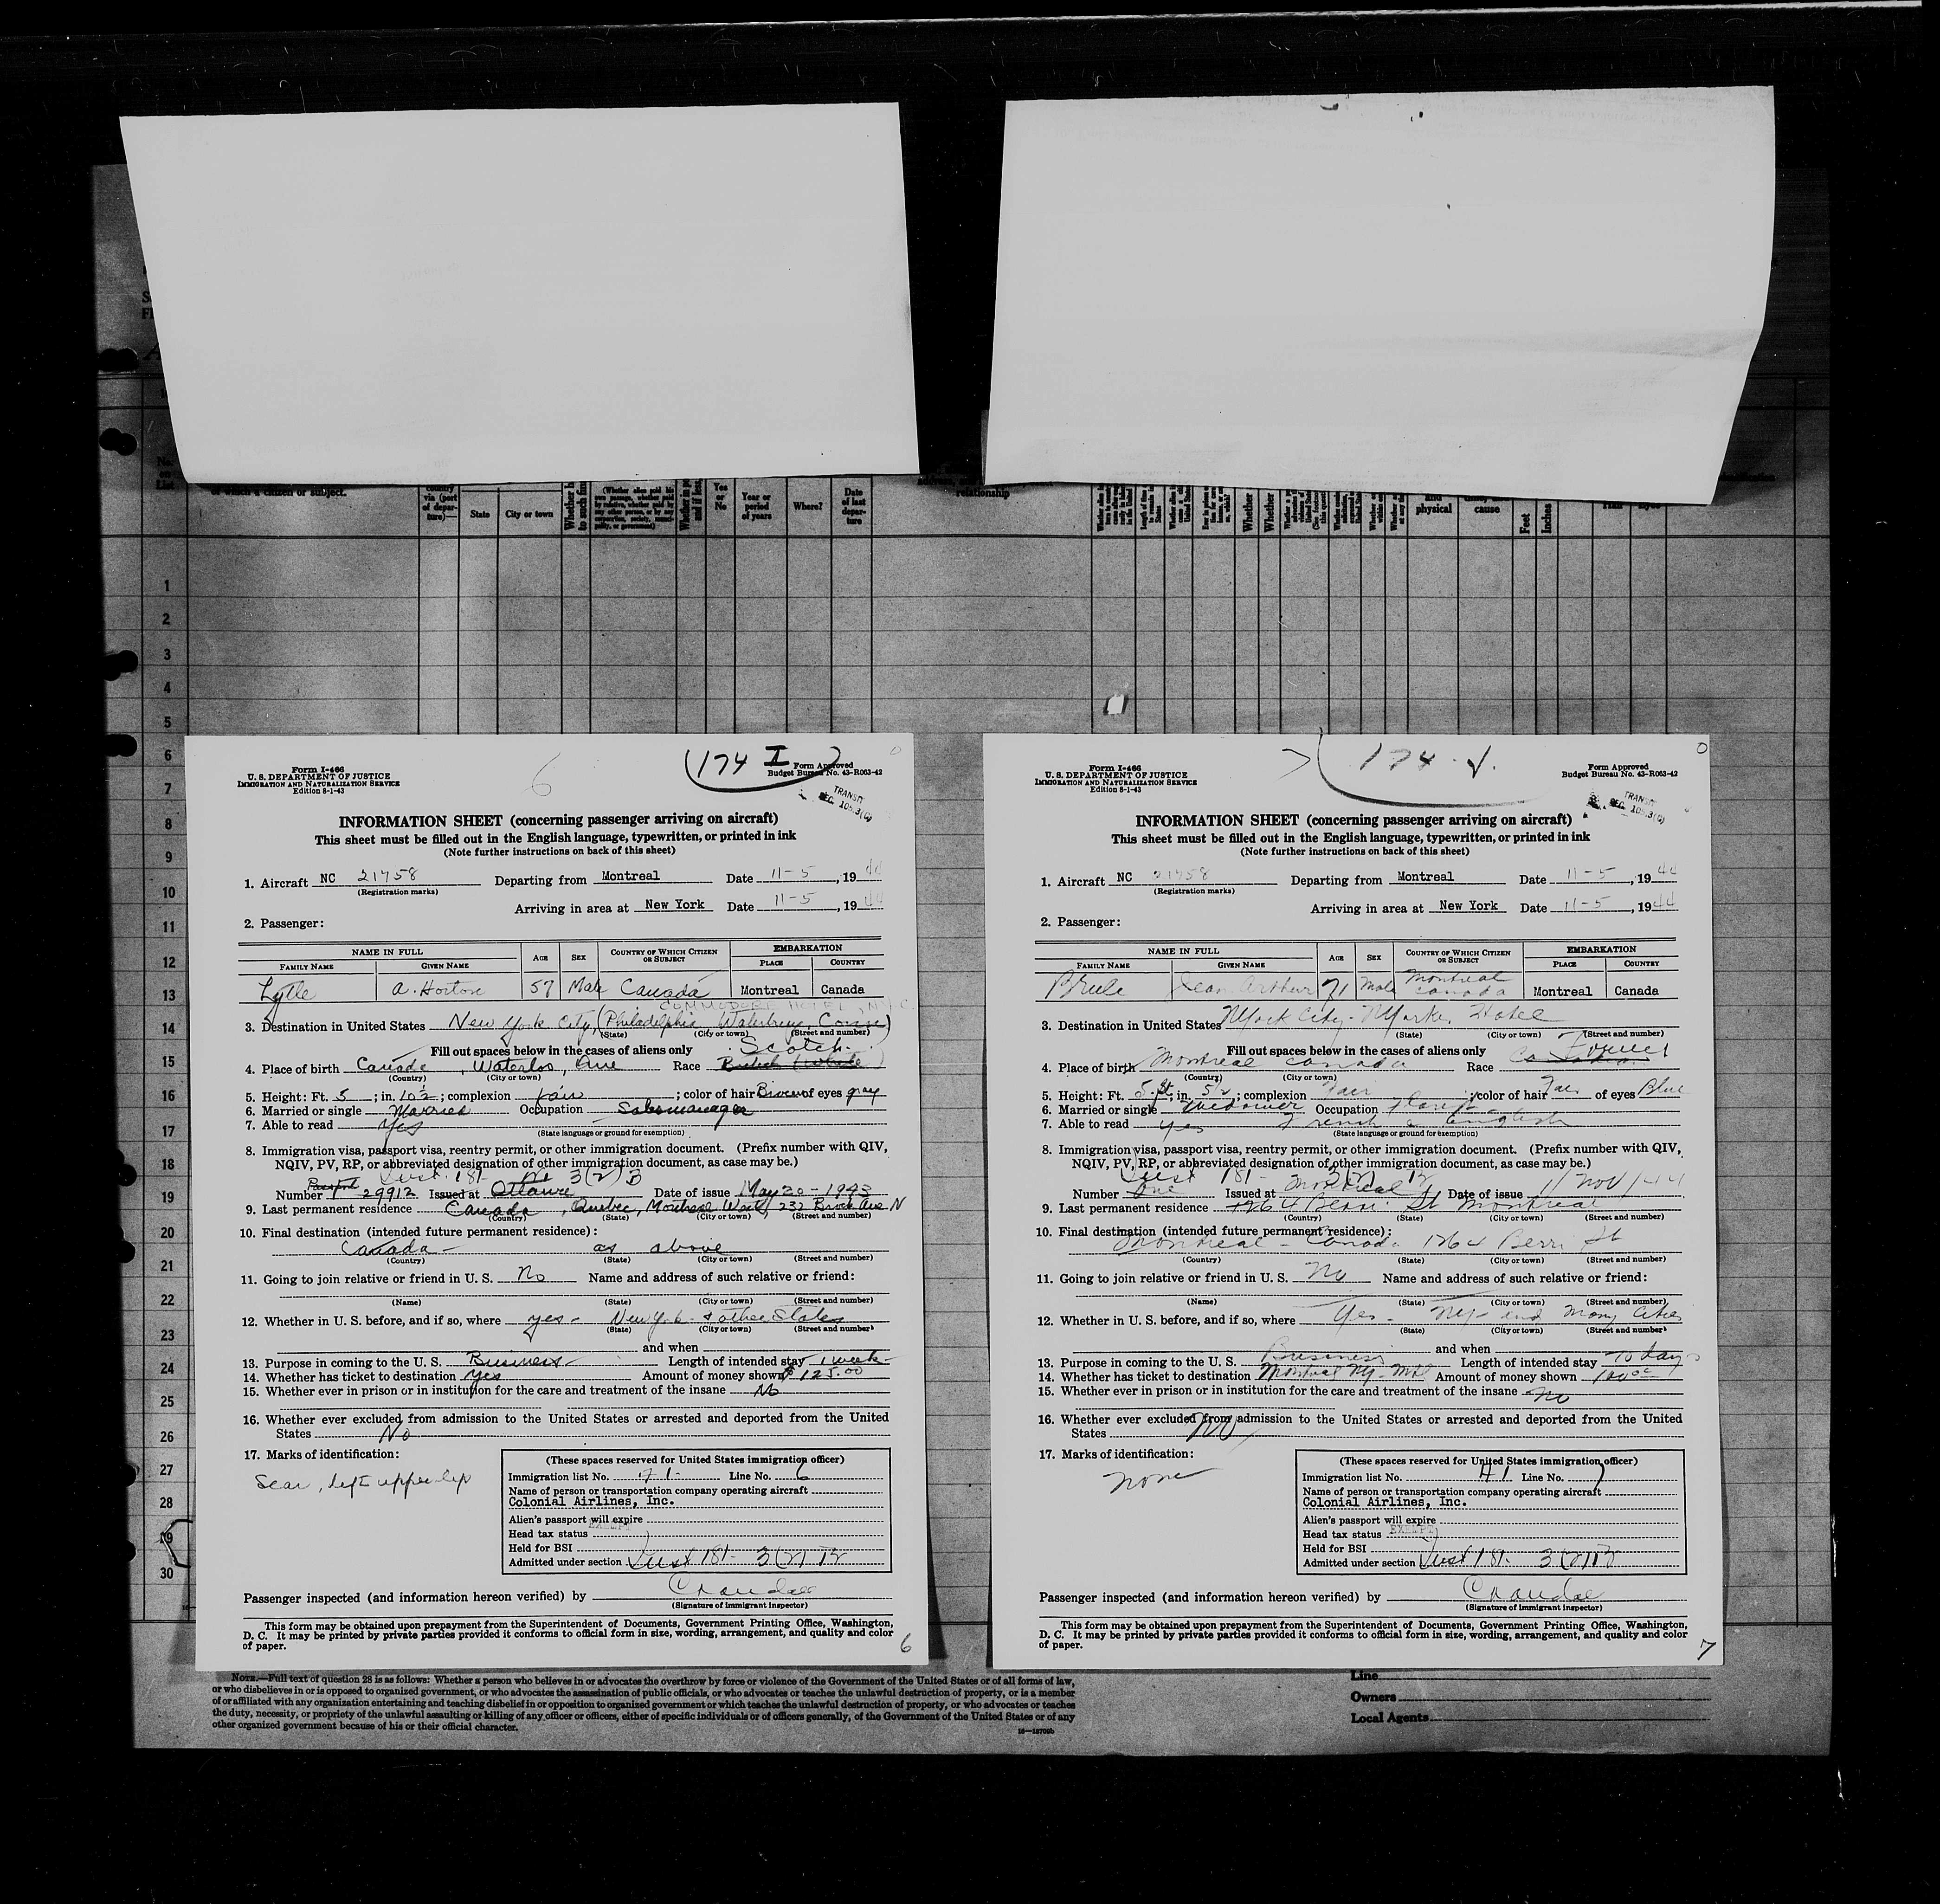 No. on List
of which a citizen or subject.
country via (port of departure)—
State
City or town
(Whether alien paid his own passage, whether paid by relative, whether paid by any other person, or by any corporation, society, municipality, or government)
Yes or No
Year or period of years
Where?
Date of last departure
relationship
Whether
Whether
and physical
cause
Feet
Inches
1
2
3
4
5
6
7
8
9
10
11
12
13
14
15
16
17
18
19
20
21
22
23
24
25
26
27
28
29
30
6
(174 I)
Form I-466
U. S. DEPARTMENT OF JUSTICE
IMMIGRATION AND NATURALIZATION SERVICE
Edition 8-1-43
Form Approved
Budget Bureau No. 43-R063-42
TRANSIT
INFORMATION SHEET (concerning passenger arriving on aircraft)
This sheet must be filled out in the English language, typewritten, or printed in ink
(Note further instructions on back of this sheet)
1. Aircraft NC 21758 Departing from Montreal Date 11-5, 1944
(Registration marks)
Arriving in area at New York Date 11-5, 1944
2. Passenger:
NAME IN FULL AGE SEX COUNTRY OF WHICH CITIZEN OR SUBJECT EMBARKATION
FAMILY NAME GIVEN NAME PLACE COUNTRY
Lytle A. Horton 57 Male Canada Montreal Canada
COMMODORE HOTEL, N.Y.C.
3. Destination in United States New York City, (Philadelphia Waterbury, Conn)
(State) (City or town) (Street and number)
Fill out spaces below in the cases of aliens only Scotch
4. Place of birth Canada, Waterloo, Que Race British (White)
(Country) (City or town)
5. Height: Ft. 5; in. 10½; complexion fair; color of hair Brown of eyes gray
6. Married or single Married Occupation Salesmanager
7. Able to read Yes
(State language or ground for exemption)
8. Immigration visa, passport visa, reentry permit, or other immigration document. (Prefix number with QIV,
NQIV, PV, RP, or abbreviated designation of other immigration document, as case may be.)
Passport 181 3(2) B
Number 29912 Issued at Ottawa Date of issue May 20-1943
9. Last permanent residence Canada, Quebec, Montreal West, 232 Brock Ave N
(Country) (State) (City or town) (Street and number)
10. Final destination (intended future permanent residence):
Canada - as above
(Country) (State) (City or town) (Street and number)
11. Going to join relative or friend in U. S. No Name and address of such relative or friend:
(Name) (State) (City or town) (Street and number)
12. Whether in U. S. before, and if so, where yes - New York & other States
(State) (City or town) (Street and number)
and when
13. Purpose in coming to the U. S. Business Length of intended stay 1 week
14. Whether has ticket to destination Yes Amount of money shown $125.00
15. Whether ever in prison or in institution for the care and treatment of the insane No
16. Whether ever excluded from admission to the United States or arrested and deported from the United
States No
17. Marks of identification:
Scar, left upper lip
(These spaces reserved for United States immigration officer)
Immigration list No. 41 Line No. 6
Name of person or transportation company operating aircraft
Colonial Airlines, Inc.
Alien's passport will expire
Head tax status EXEMPT
Held for BSI
Admitted under section 181- 3(2) B
Passenger inspected (and information hereon verified) by
(Signature of immigrant inspector)
This form may be obtained upon prepayment from the Superintendent of Documents, Government Printing Office, Washington,
D. C. It may be printed by private parties provided it conforms to official form in size, wording, arrangement, and quality and color
of paper.
6
174
Form I-466
U. S. DEPARTMENT OF JUSTICE
IMMIGRATION AND NATURALIZATION SERVICE
Edition 8-1-43
Form Approved
Budget Bureau No. 43-R063-42
TRANSIT
INFORMATION SHEET (concerning passenger arriving on aircraft)
This sheet must be filled out in the English language, typewritten, or printed in ink
(Note further instructions on back of this sheet)
1. Aircraft NC 21758 Departing from Montreal Date 11-5, 1944
(Registration marks)
Arriving in area at New York Date 11-5, 1944
2. Passenger:
NAME IN FULL AGE SEX COUNTRY OF WHICH CITIZEN OR SUBJECT EMBARKATION
FAMILY NAME GIVEN NAME PLACE COUNTRY
Brule Jean Arthur 71 Male Montreal Canada Montreal Canada
3. Destination in United States N York City - Hotel
(State) (City or town) (Street and number)
Fill out spaces below in the cases of aliens only French
4. Place of birth Montreal Canada Race
(Country) (City or town)
5. Height: Ft. 5; in. 5½; complexion Fair; color of hair Fair of eyes Blue
6. Married or single Widower Occupation Florist
7. Able to read yes French & English
(State language or ground for exemption)
8. Immigration visa, passport visa, reentry permit, or other immigration document. (Prefix number with QIV,
NQIV, PV, RP, or abbreviated designation of other immigration document, as case may be.)
181- 3(2) B
Number One Issued at Montreal Date of issue 1/Nov/44
9. Last permanent residence 1264 Berri St Montreal
(Country) (State) (City or town) (Street and number)
10. Final destination (intended future permanent residence):
Montreal - Canada 1264 Berri St
(Country) (State) (City or town) (Street and number)
11. Going to join relative or friend in U. S. No Name and address of such relative or friend:
(Name) (State) (City or town) (Street and number)
12. Whether in U. S. before, and if so, where Yes - NY - and Many Cities
(State) (City or town) (Street and number)
and when
13. Purpose in coming to the U. S. Business Length of intended stay 10 days
14. Whether has ticket to destination Montreal NY - Mtl Amount of money shown 100.00
15. Whether ever in prison or in institution for the care and treatment of the insane No
16. Whether ever excluded from admission to the United States or arrested and deported from the United
States No
17. Marks of identification:
none
(These spaces reserved for United States immigration officer)
Immigration list No. 41 Line No. 7
Name of person or transportation company operating aircraft
Colonial Airlines, Inc.
Alien's passport will expire
Head tax status EXEMPT
Held for BSI
Admitted under section 181- 3(2) B
Passenger inspected (and information hereon verified) by
(Signature of immigrant inspector)
This form may be obtained upon prepayment from the Superintendent of Documents, Government Printing Office, Washington,
D. C. It may be printed by private parties provided it conforms to official form in size, wording, arrangement, and quality and color
of paper.
7
NOTE.—Full text of question 28 is as follows: Whether a person who believes in or advocates the overthrow by force or violence of the Government of the United States or of all forms of law,
or who disbelieves in or is opposed to organized government, or who advocates the assassination of public officials, or who advocates or teaches the unlawful destruction of property, or is a member
of or affiliated with any organization entertaining and teaching disbelief in or opposition to organized government or which teaches the unlawful destruction of property, or who advocates or teaches
the duty, necessity, or propriety of the unlawful assaulting or killing of any officer or officers, either of specific individuals or of officers generally, of the Government of the United States or of any
other organized government because of his or their official character.
Line
Owners
Local Agents